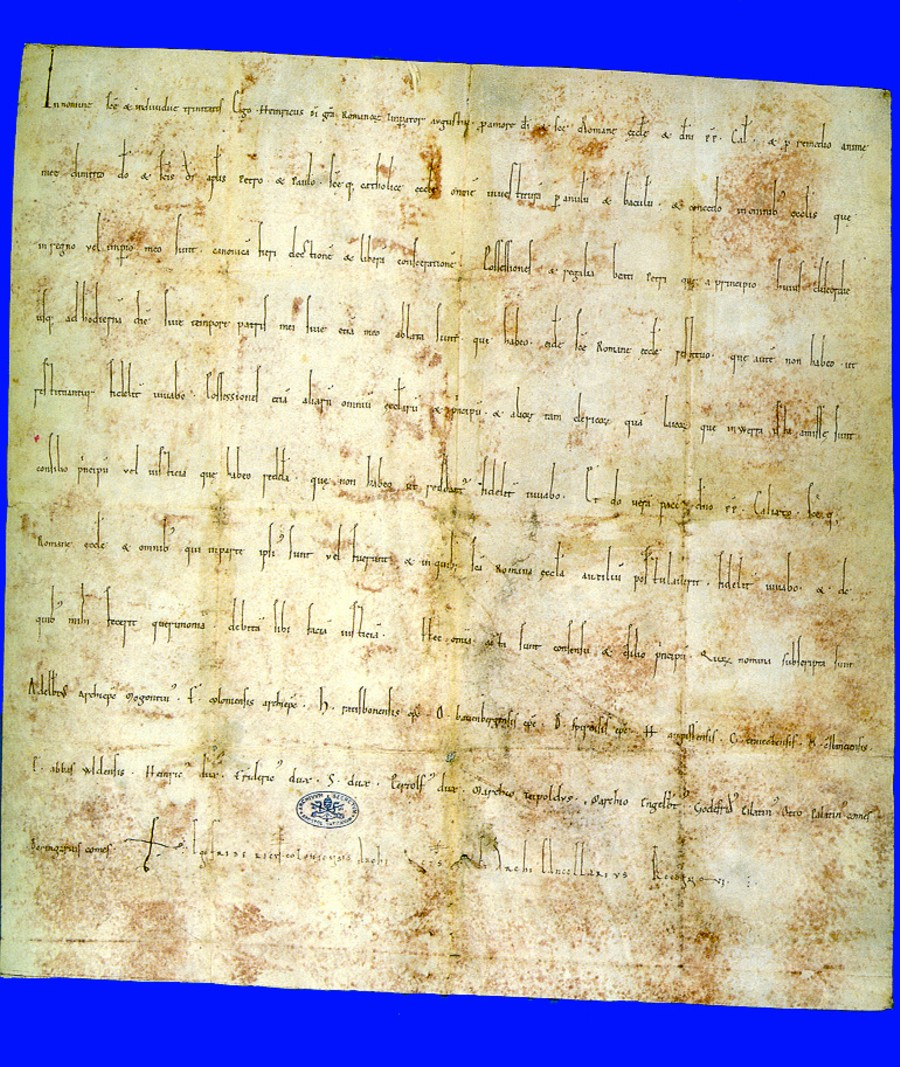 In nomine scē & individuę trinitatis Ego Heinricus dī grā Romanorꝝ Impator augustus p amore dī & scē Romanę ęcclę & dn̄i pp̄. Cal. & p remedio animę
meę dimitto dō & scīs dī aplīs Petro & Paulo. scēq; catholicę ęcclę omnē investiturā p anulū & baculū. & concedo in omnib; ęcclīis quę
in regno vel imperio meo sunt. canonicā fieri electionē & liberā consecrationē. Possessiones & regalia beati Petri quę a principio huius discordię
usq; ad hodiernā diē sive tempore patris mei sive etiā meo ablata sunt. quę habeo. eidē scē Romanę ęcclę restituo. quę autē non habeo ut
restituantur fidelit iuvabo. Possessiones etiā aliarū omniū ęcclarū & principū. & aliorꝝ tam clericorꝝ quā laicorꝝ quę in werra ista amissę sunt
consilio principū vel iusticia quę habeo reddā. quę non habeo ut reddant fidelit iuvabo. Et do verā pacē dn̄o pp̄. Calixto. scēq;
Romanę ęcclę & omnib; qui in parte ipsius sunt vel fuerunt & in quib; scā Romana ęccla auxiliū postulaverit. fidelit iuvabo. & de
quib; mihi fecerit querimoniā. debitā sibi faciā iusticiā. Hęc omnia acta sunt consensu & consilio principū. Quorꝝ nomina subscripta sunt
Adelbtus archiepc Mogontin. F. coloniensis archiepc. H. ratisbonensis epc. O. bavenbergensis epc. B. spirensis epc. H. augustensis. G. traiectensis.
E. abbas wldensis. Heinric dux. Fridericus dux. S. dux. Pertolf dux. Marchio teipoldus. Marchio Engelbt. Godefrid Palatin. Otto Palatin comes
Berengarius comes
Archi Cancellarius Recognovi